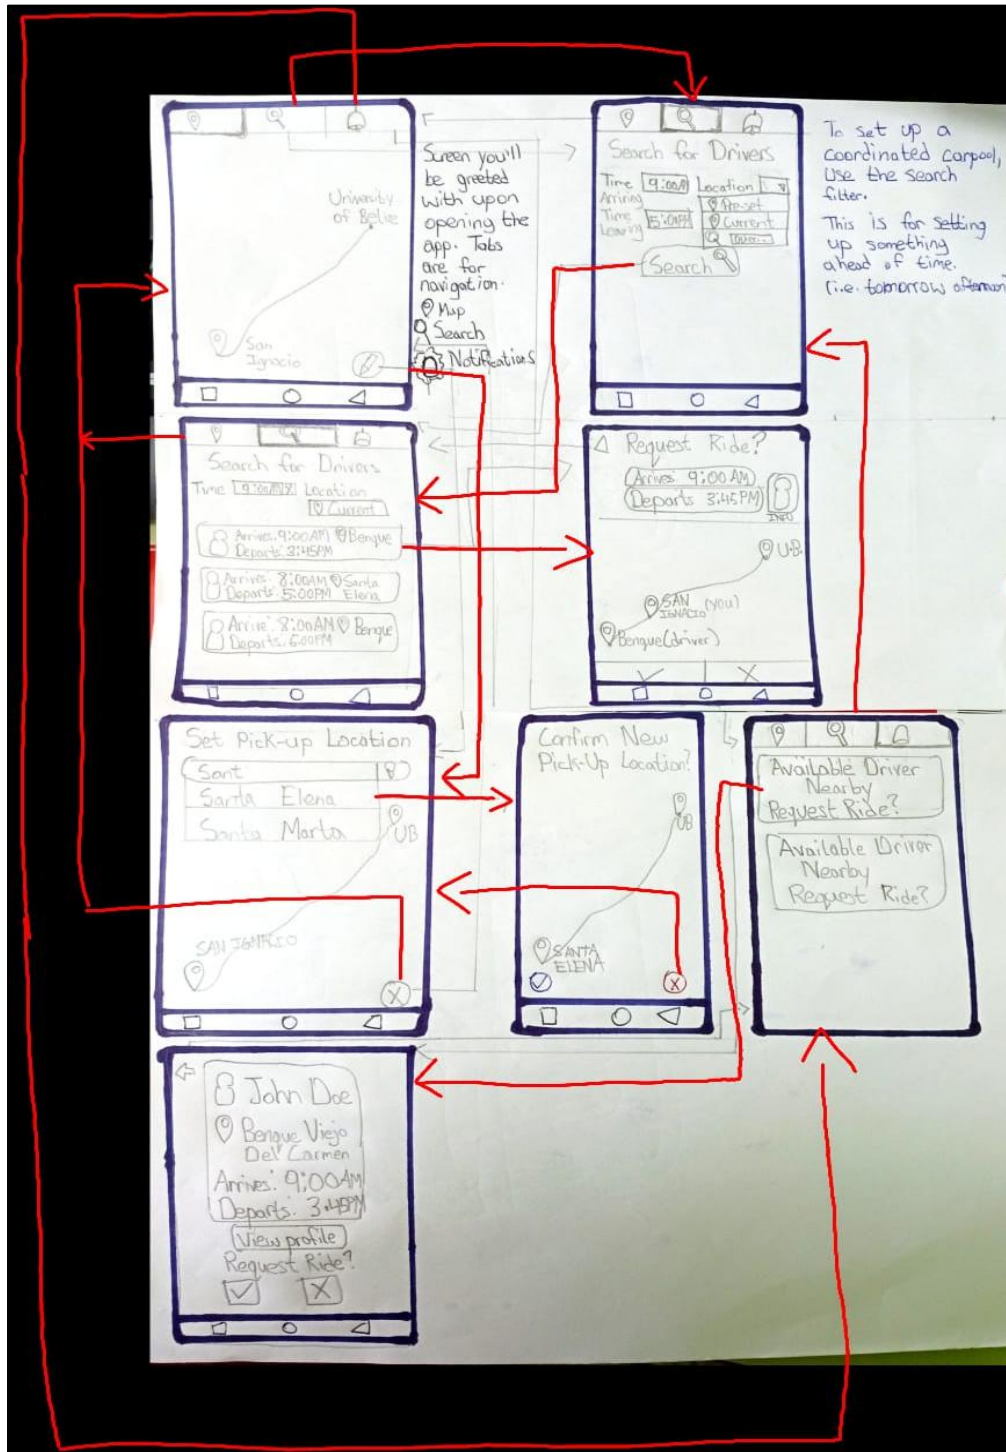 University
of Belize
San
Ignacio
Screen you'll
be greeted
with upon
opening the
app. Tabs
are for
navigation.
Map
Search
Notifications
Search for Drivers
Time
Arriving
9:00AM
Location
Time
Leaving
5:00PM
Pre-set
Current
Search
To set up a
coordinated carpool,
use the search
filter.
This is for setting
up something
ahead of time.
(i.e. tomorrow afternoon)
Search for Drivers
Time 9:00AM Location
Current
Arrives: 9:00AM Benque
Departs: 3:45PM
Arrives: 8:00AM Santa
Departs: 5:00PM Elena
Arrive: 8:00AM Benque
Departs: 5:00PM
Request Ride?
Arrives: 9:00 AM
Departs 3:45PM
INFO
U.B.
SAN
IGNACIO (you)
Benque (driver)
Set Pick-up Location
Sant
Santa Elena
Santa Marta
UB
SAN IGNACIO
X
Confirm New
Pick-Up Location?
UB
SANTA
ELENA
X
Available Driver
Nearby
Request Ride?
Available Driver
Nearby
Request Ride?
John Doe
Benque Viejo
Del Carmen
Arrives: 9:00AM
Departs: 3:45PM
View profile
Request Ride?
X